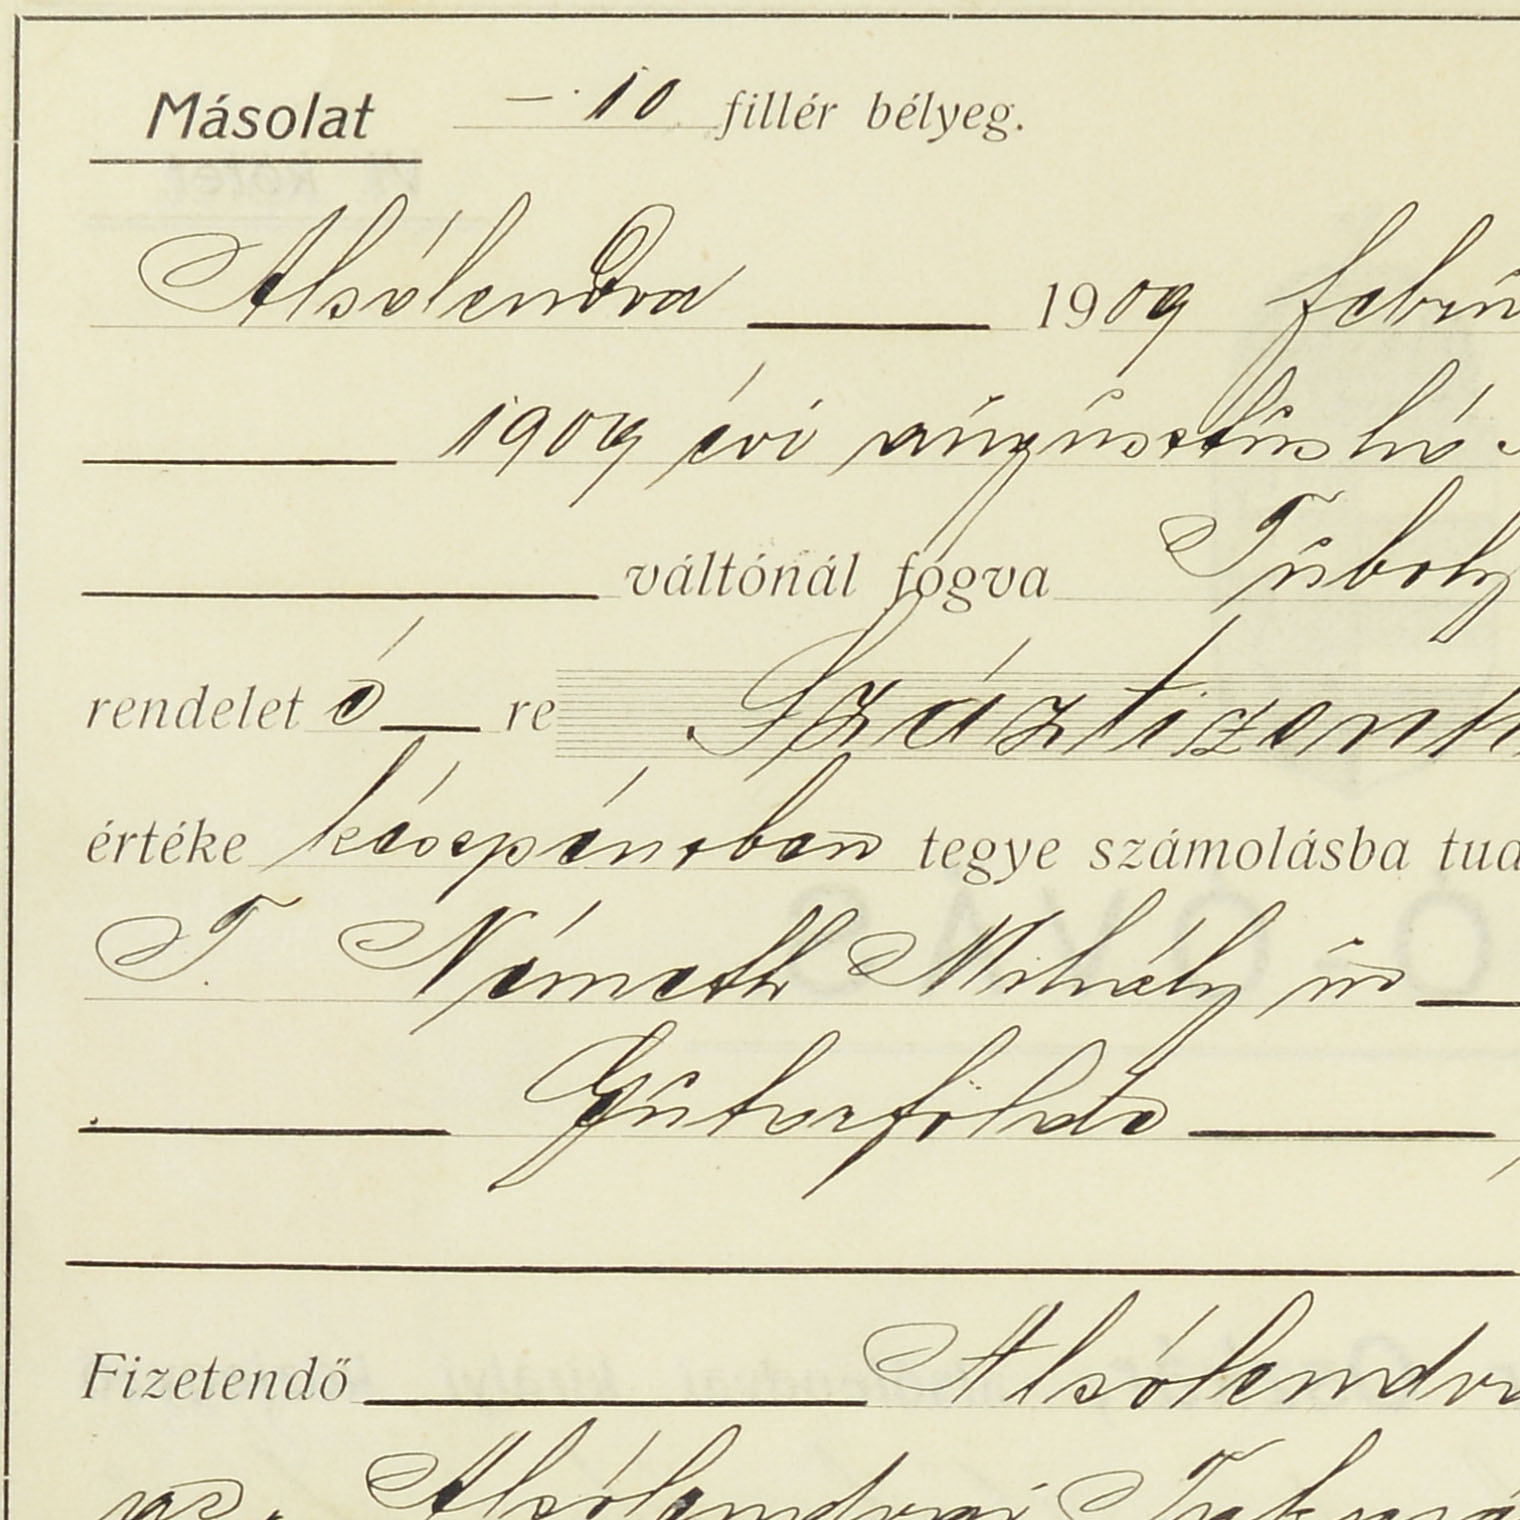 Másolat — 10 fillér bélyeg.
Alsólendva 1909 febru
1909 évi augusztus hó
váltónál fogva Tuboly
rendelet ő re Száztizen
értéke készpénzben tegye számolásba tud
T. Németh Mihály úr
Guterfölde
Fizetendő Alsólendva
az Alsólendvai Takaré